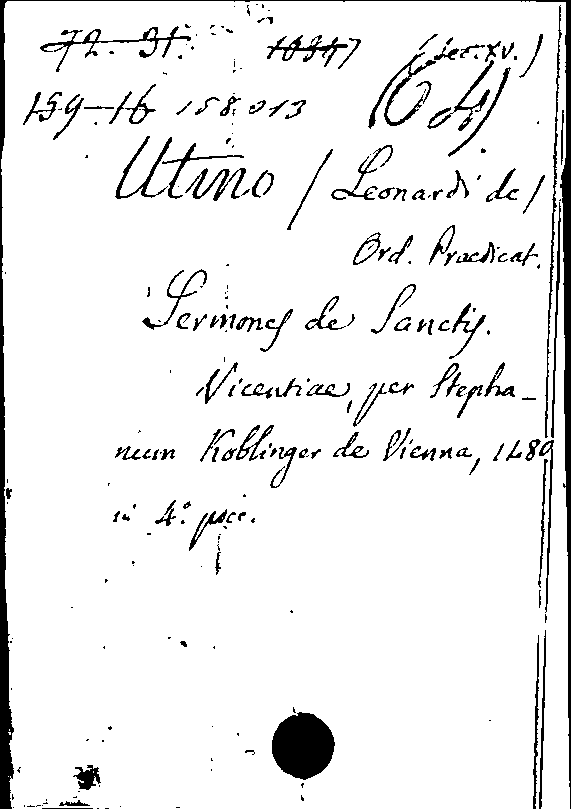 72. 31. 10347 (Sec. xv.)
159-16 158.013
Utino / Leonardi de /
Ord. Praedicat.
Sermones de Sanctis.
Vicentiae, per Stepha-
num Koblinger de Vienna, 1480
in 4°.